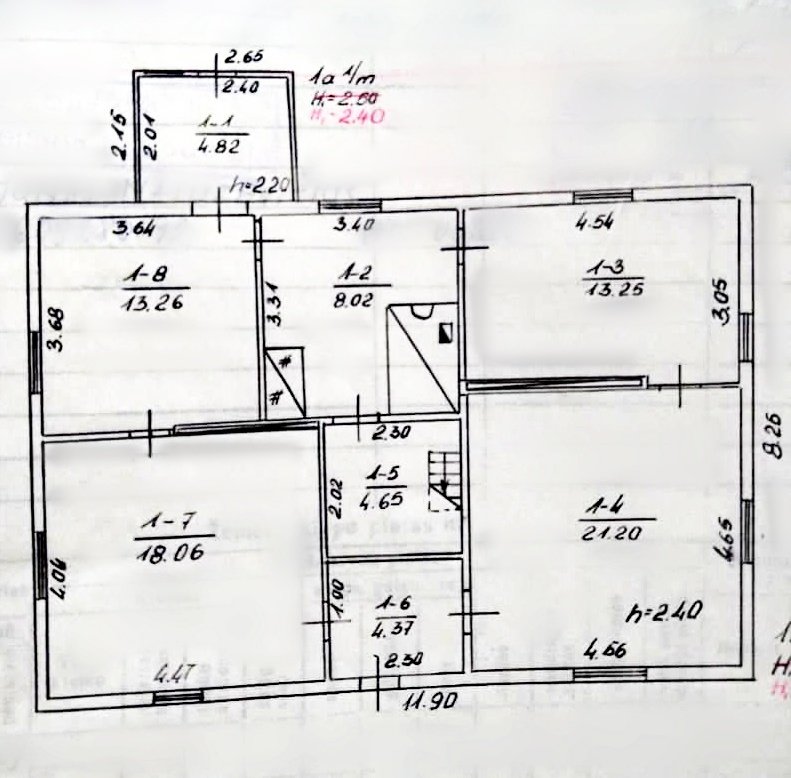 2.65
2.40
1a 1/m
H₁=2.60
H₁-2.40
2.15
2.01
1-1
4.82
h=2.20
3.64
3.40
4.54
1-8
13.26
1-2
8.02
1-3
13.25
3.68
3.31
3.05
#
#
2.30
8.26
1-5
4.65
2.02
1-7
18.06
1-4
21.20
4.65
4.04
1.90
1-6
4.37
h=2.40
2.30
4.66
4.47
11.90